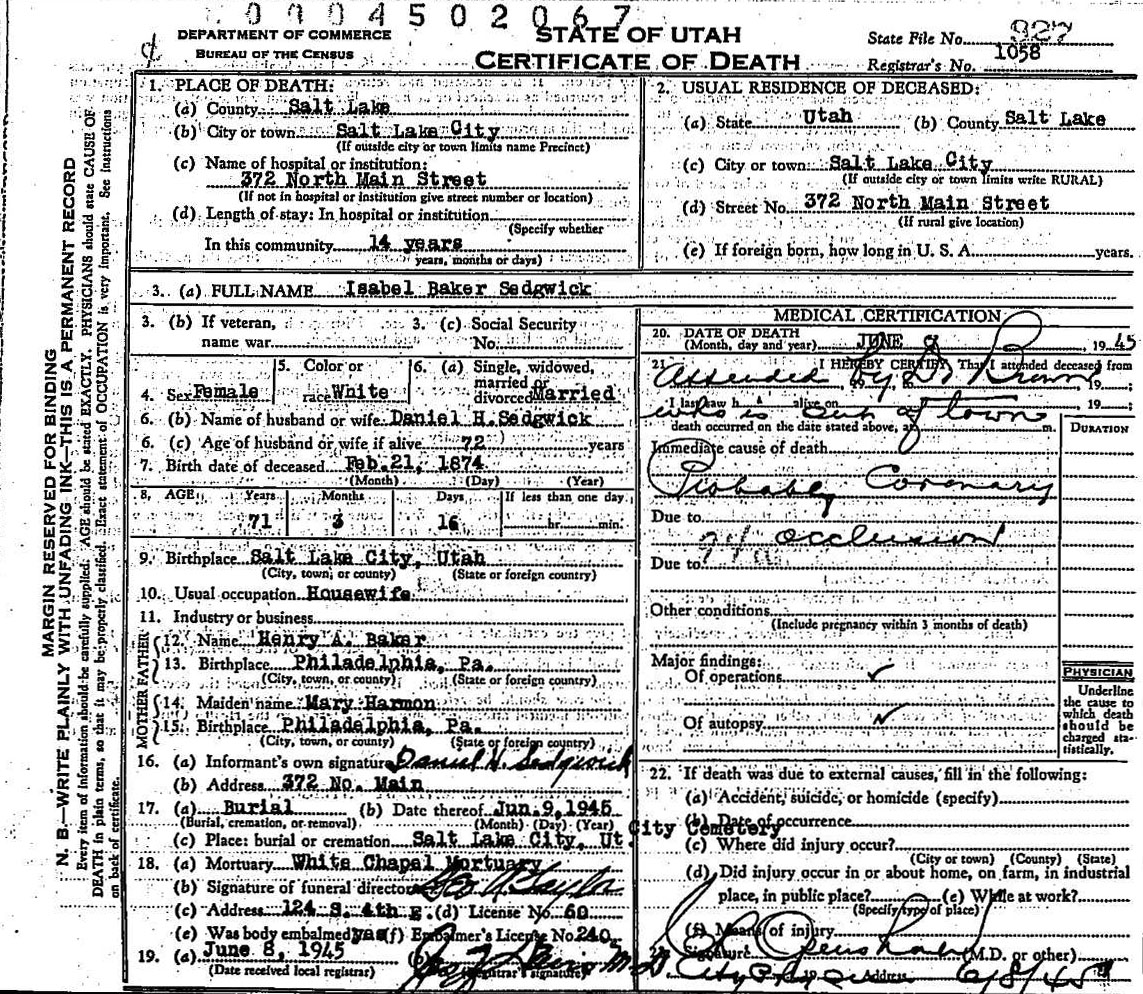 0004502067
DEPARTMENT OF COMMERCE
BUREAU OF THE CENSUS
STATE OF UTAH
CERTIFICATE OF DEATH
State File No. 927
Registrar's No. 1058
MARGIN RESERVED FOR BINDING
N. B.—WRITE PLAINLY WITH UNFADING INK—THIS IS A PERMANENT RECORD
Every item of information should be carefully supplied. AGE should be stated EXACTLY. PHYSICIANS should state CAUSE OF
DEATH in plain terms, so that it may be properly classified. Exact statement of OCCUPATION is very important. See instructions
on back of certificate.
1. PLACE OF DEATH:
(a) County Salt Lake
(b) City or town Salt Lake City
(If outside city or town limits name Precinct)
(c) Name of hospital or institution:
372 North Main Street
(If not in hospital or institution give street number or location)
(d) Length of stay: In hospital or institution
(Specify whether
In this community 14 years
years, months or days)
2. USUAL RESIDENCE OF DECEASED:
(a) State Utah (b) County Salt Lake
(c) City or town Salt Lake City
(If outside city or town limits write RURAL)
(d) Street No. 372 North Main Street
(If rural give location)
(e) If foreign born, how long in U. S. A. years.
3. (a) FULL NAME Isabel Baker Sedgwick
3. (b) If veteran, name war
3. (c) Social Security No.
4. Sex Female
5. Color or race White
6. (a) Single, widowed, married or divorced Married
6. (b) Name of husband or wife Daniel H. Sedgwick
6. (c) Age of husband or wife if alive 72 years
7. Birth date of deceased Feb. 21, 1874
(Month) (Day) (Year)
8. AGE: Years Months Days If less than one day
71 3 16 hr. min.
9. Birthplace Salt Lake City, Utah
(City, town, or county) (State or foreign country)
10. Usual occupation Housewife
11. Industry or business
FATHER
12. Name Henry A. Baker
13. Birthplace Philadelphia, Pa.
(City, town, or county) (State or foreign country)
MOTHER
14. Maiden name Mary Harmon
15. Birthplace Philadelphia, Pa.
(City, town, or county) (State or foreign country)
16. (a) Informant's own signature Daniel H. Sedgwick
(b) Address 372 No. Main
17. (a) Burial (b) Date thereof Jun. 9, 1945
(Burial, cremation, or removal) (Month) (Day) (Year)
(c) Place: burial or cremation Salt Lake City, Ut. City Cemetery
18. (a) Mortuary White Chapel Mortuary
(b) Signature of funeral director
(c) Address 124 S. 4th E. (d) License No. 60
(e) Was body embalmed yes (f) Embalmer's License No. 240
19. (a) June 8, 1945 (b)
(Date received local registrar) (Registrar's signature)
MEDICAL CERTIFICATION
20. DATE OF DEATH
(Month, day and year) JUNE 19 45
21. I HEREBY CERTIFY That I attended deceased from
Attended by Dr Brown 19
I last saw h alive on 19
who is out of town
death occurred on the date stated above, at m.
DURATION
Immediate cause of death
Probably Coronary
Due to
occlusion
Due to
Other conditions
(Include pregnancy within 3 months of death)
Major findings:
Of operations ✓
Of autopsy ✓
PHYSICIAN
Underline
the cause to
which death
should be
charged sta-
tistically.
22. If death was due to external causes, fill in the following:
(a) Accident, suicide, or homicide (specify)
(b) Date of occurrence
(c) Where did injury occur?
(City or town) (County) (State)
(d) Did injury occur in or about home, on farm, in industrial
place, in public place? (e) While at work?
(Specify type of place)
(f) Means of injury
Signature (M.D. or other)
Address 6/8/45